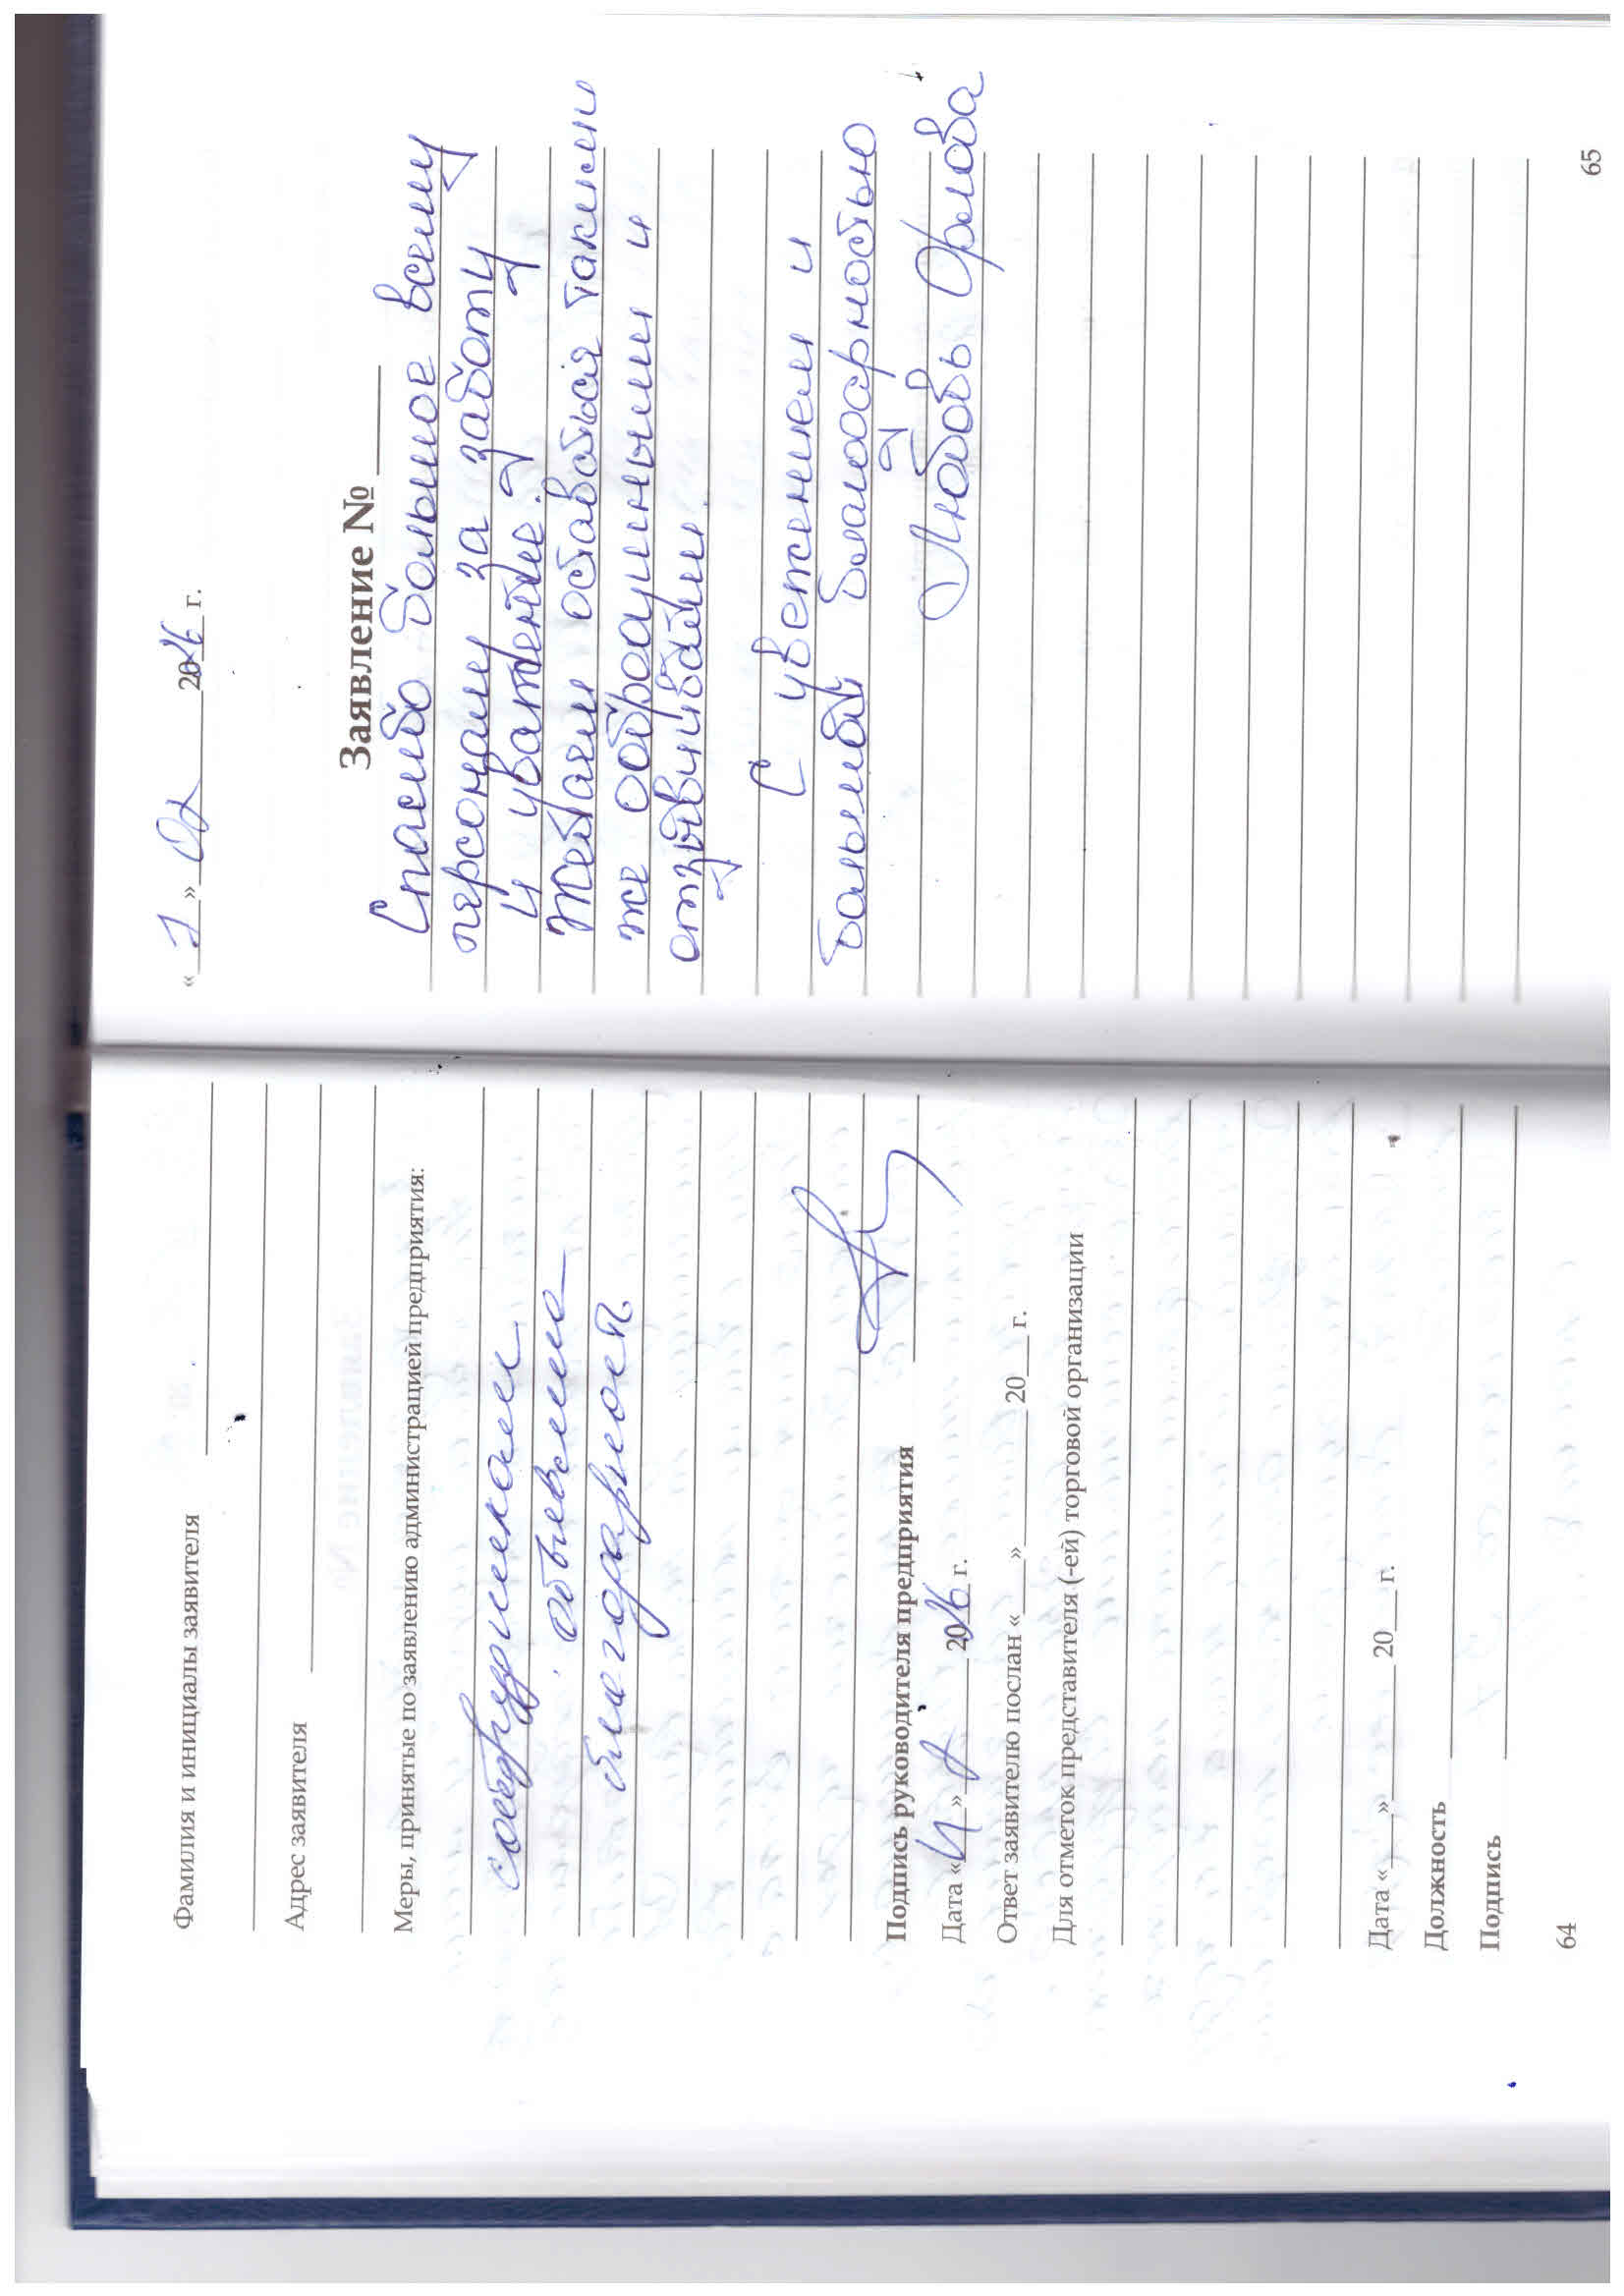 Фамилия и инициалы заявителя
Адрес заявителя
Меры, принятые по заявлению администрацией предприятия:
сотрудникам
объявлена
благодарность
Подпись руководителя предприятия
Дата « » 2016 г.
Ответ заявителю послан «___»________ 20___ г.
Для отметок представителя (-ей) торговой организации
Дата «___»________ 20___ г.
Должность
Подпись
64
« 1 » 02 2016 г.
Заявление № ____
Спасибо большое всему
персоналу за заботу
и уважение.
Желаем оставаться такими
же добродушными и
отзывчивыми.
С увежением и
большой благодарностью
Любовь Орлова
65